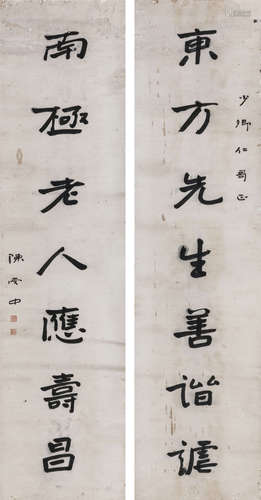 少卿仁哥正
東方先生善詼謔
南極老人應壽昌